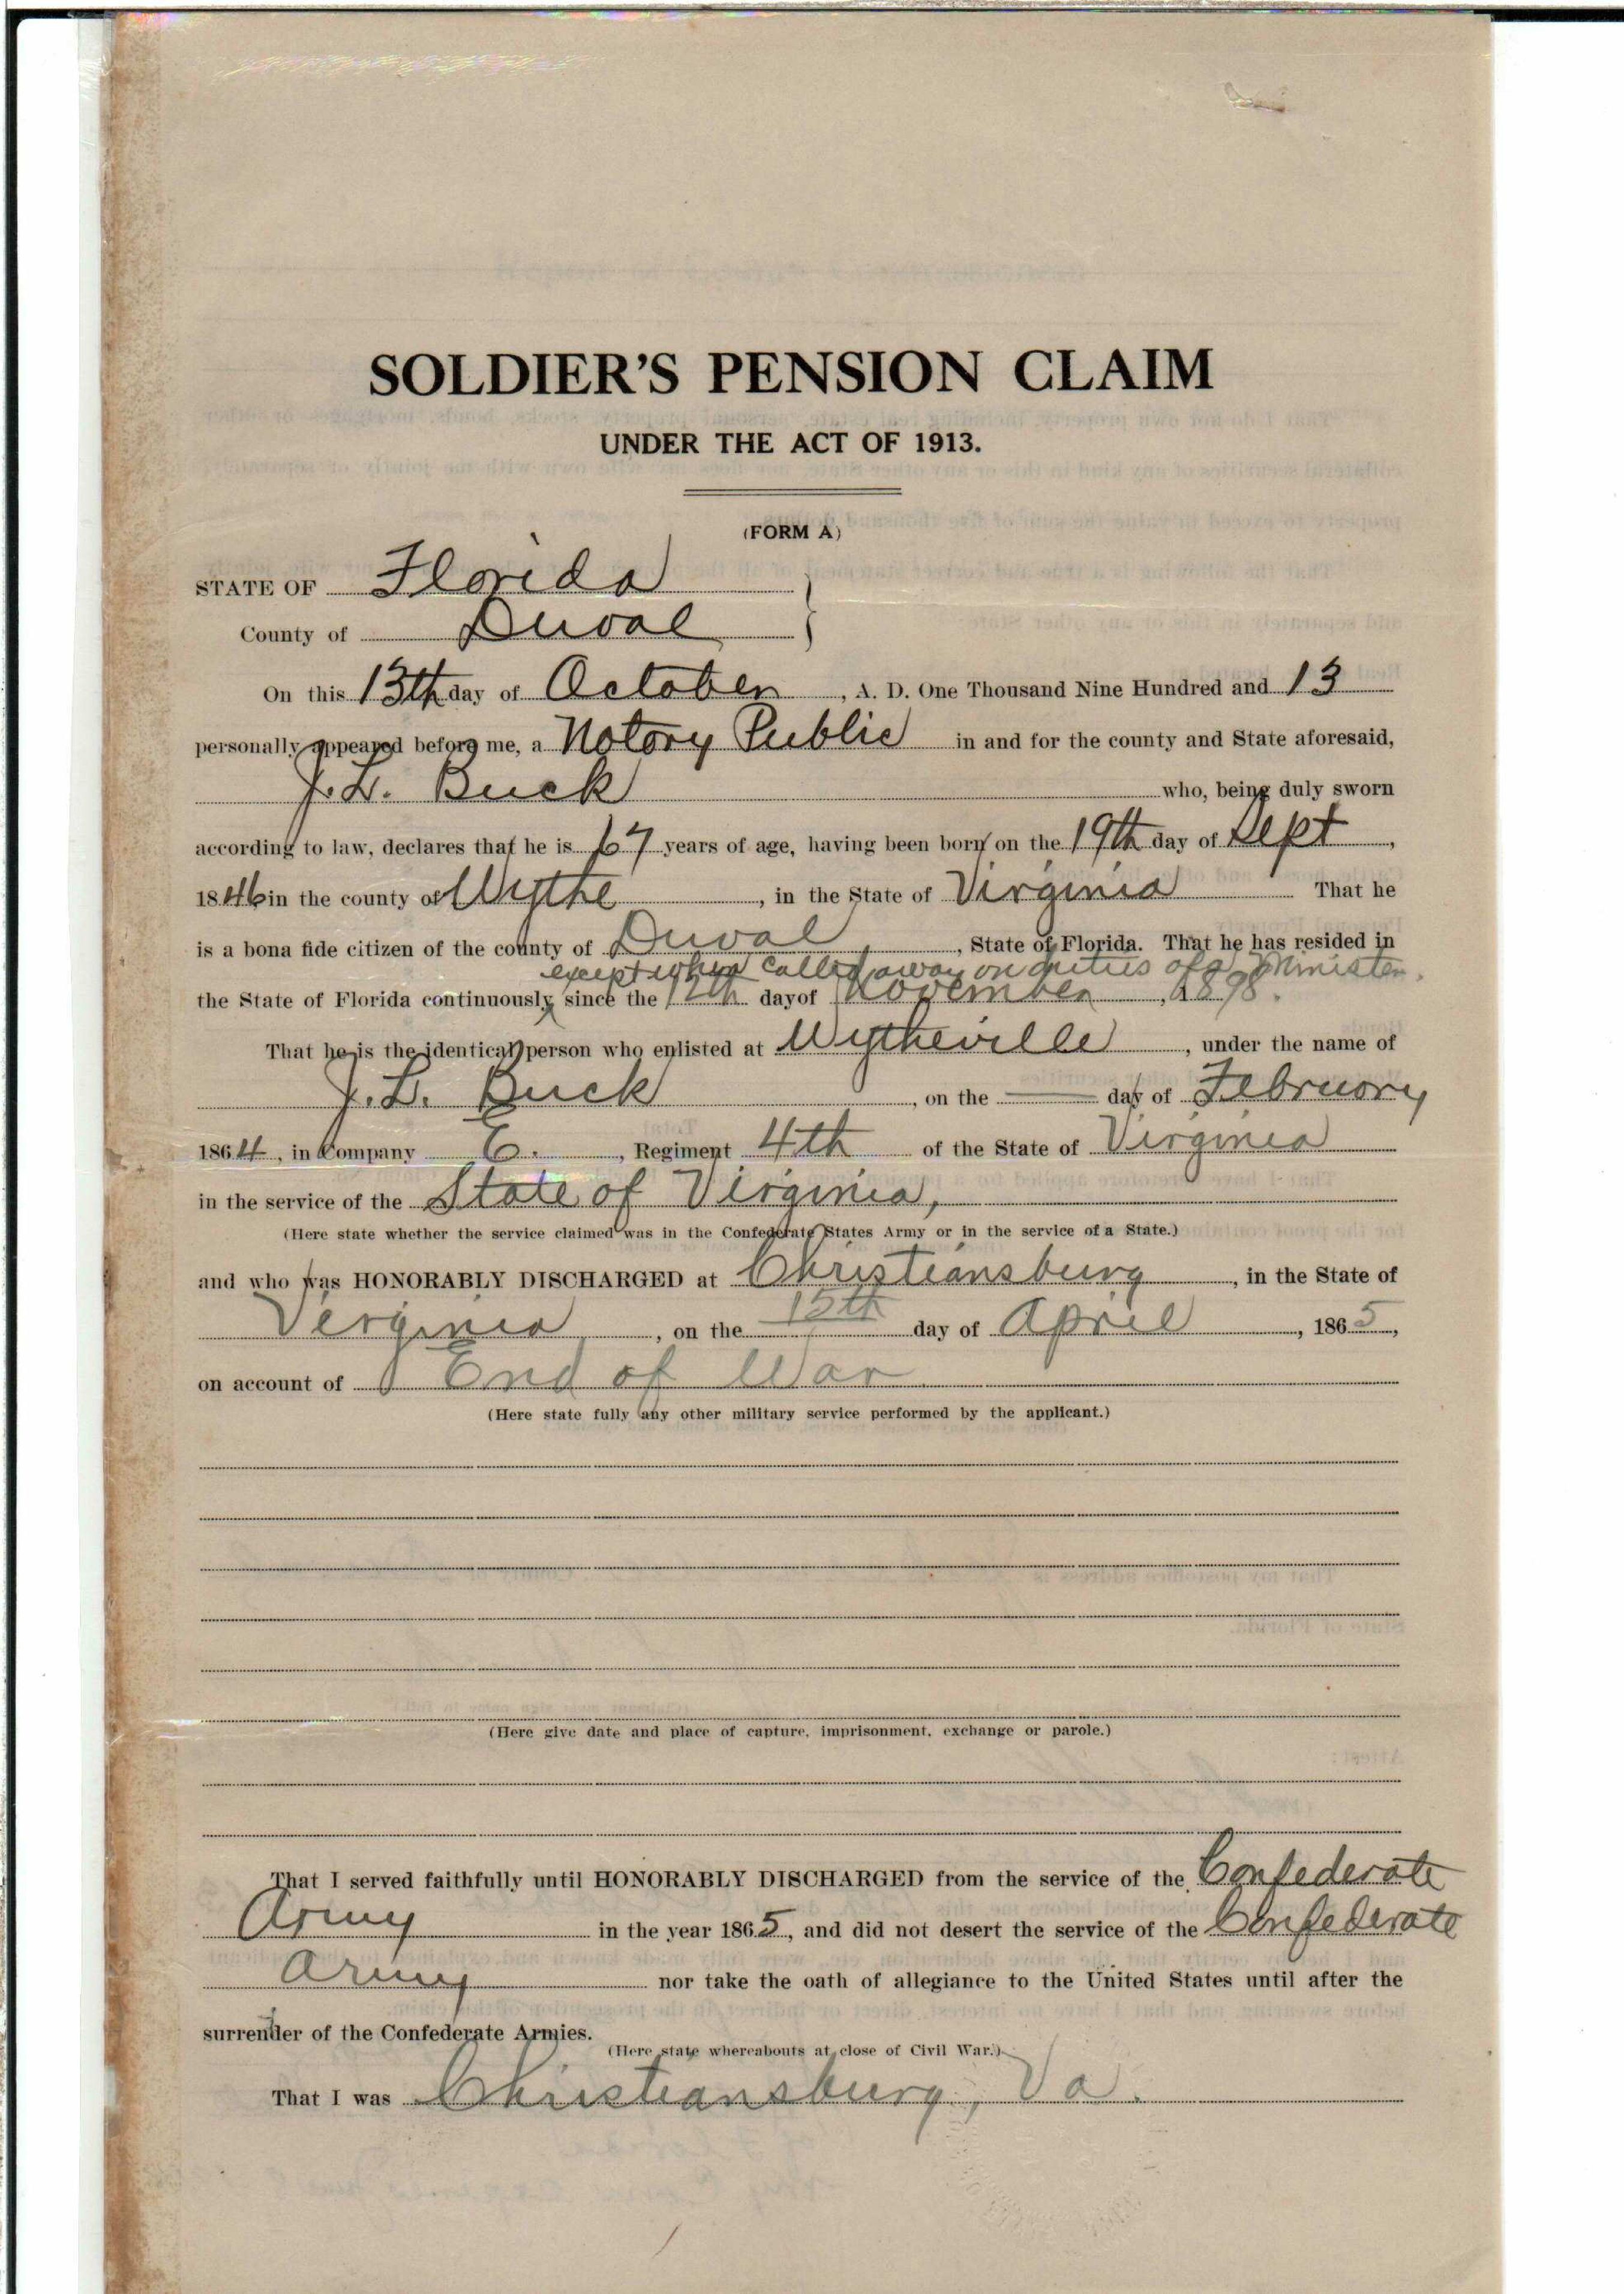 SOLDIER'S PENSION CLAIM
UNDER THE ACT OF 1913.
(FORM A)
STATE OF Florida
County of Duval
On this 13th day of October, A. D. One Thousand Nine Hundred and 13
personally appeared before me, a Notory Public in and for the county and State aforesaid,
J. L. Buck who, being duly sworn
according to law, declares that he is 67 years of age, having been born on the 19th day of Sept,
1846 in the county of Wythe, in the State of Virginia That he
is a bona fide citizen of the county of Duval, State of Florida. That he has resided in
except when called away on duties of a Minister.
the State of Florida continuously since the 12th day of November, 1898.
That he is the identical person who enlisted at Wytheville, under the name of
J. L. Buck, on the — day of February
1864, in Company E., Regiment 4th of the State of Virginia
in the service of the State of Virginia,
(Here state whether the service claimed was in the Confederate States Army or in the service of a State.)
and who was HONORABLY DISCHARGED at Christiansburg, in the State of
Virginia, on the 15th day of April, 1865,
on account of End of War
(Here state fully any other military service performed by the applicant.)
(Here give date and place of capture, imprisonment, exchange or parole.)
That I served faithfully until HONORABLY DISCHARGED from the service of the Confederate
Army in the year 1865, and did not desert the service of the Confederate
Army nor take the oath of allegiance to the United States until after the
surrender of the Confederate Armies.
(Here state whereabouts at close of Civil War.)
That I was Christiansburg, Va.